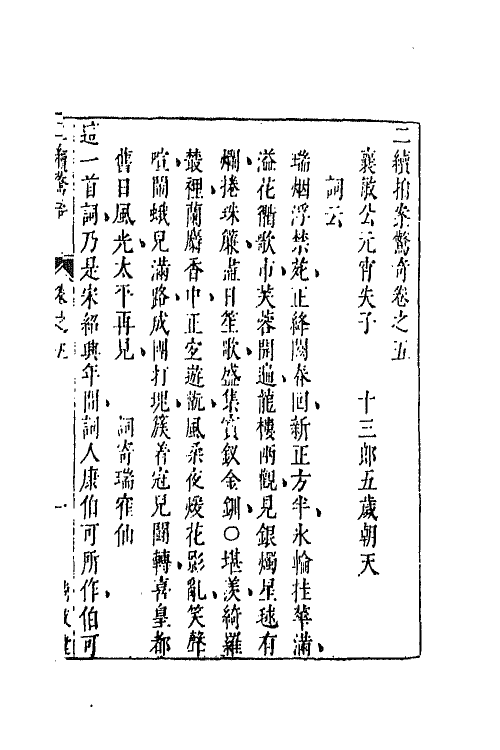 二續拍案驚奇卷之五
襄敏公元宵失子　十三郎五歲朝天
詞云
瑞烟浮禁苑正絳闕春回新正方半氷輪挂華滿
溢花衢歌市芙蓉開遍龍樓兩觀見銀燭星毬有
爛捲珠簾盡日笙歌盛集寳釵金釧○堪羡綺羅
叢裡蘭麝香中正宜遊翫風柔夜煖花影亂笑聲
喧鬧蛾兒滿路成團打塊簇着冠兒鬪轉喜皇都
舊日風光太平再見　詞寄瑞寉仙
這一首詞乃是宋紹興年間詞人康伯可所作伯可
二續驚奇　卷之五　一　尚友堂